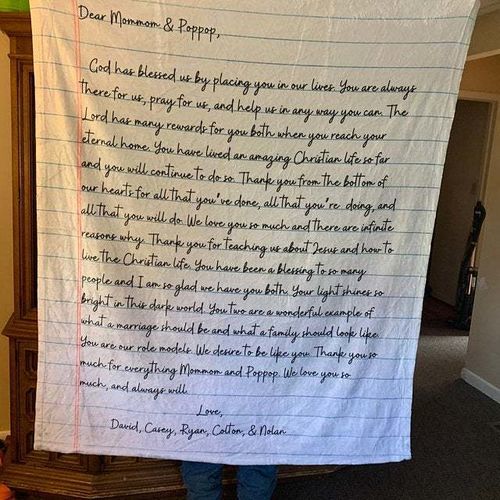 Dear Mommom & Poppop,
God has blessed us by placing you in our lives. You are always
there for us, pray for us, and help us in any way you can. The
Lord has many rewards for you both when you reach your
eternal home. You have lived an amazing Christian life so far
and you will continue to do so. Thank you from the bottom of
our hearts for all that you've done, all that you're doing, and
all that you will do. We love you so much and there are infinite
reasons why. Thank you for teaching us about Jesus and how to
live the Christian life. You have been a blessing to so many
people and I am so glad we have you both. Your light shines so
bright in this dark world. You two are a wonderful example of
what a marriage should be and what a family should look like.
You are our role models. We desire to be like you. Thank you so
much for everything Mommom and Poppop. We love you so
much, and always will.
Love,
David, Casey, Ryan, Colton, & Nolan